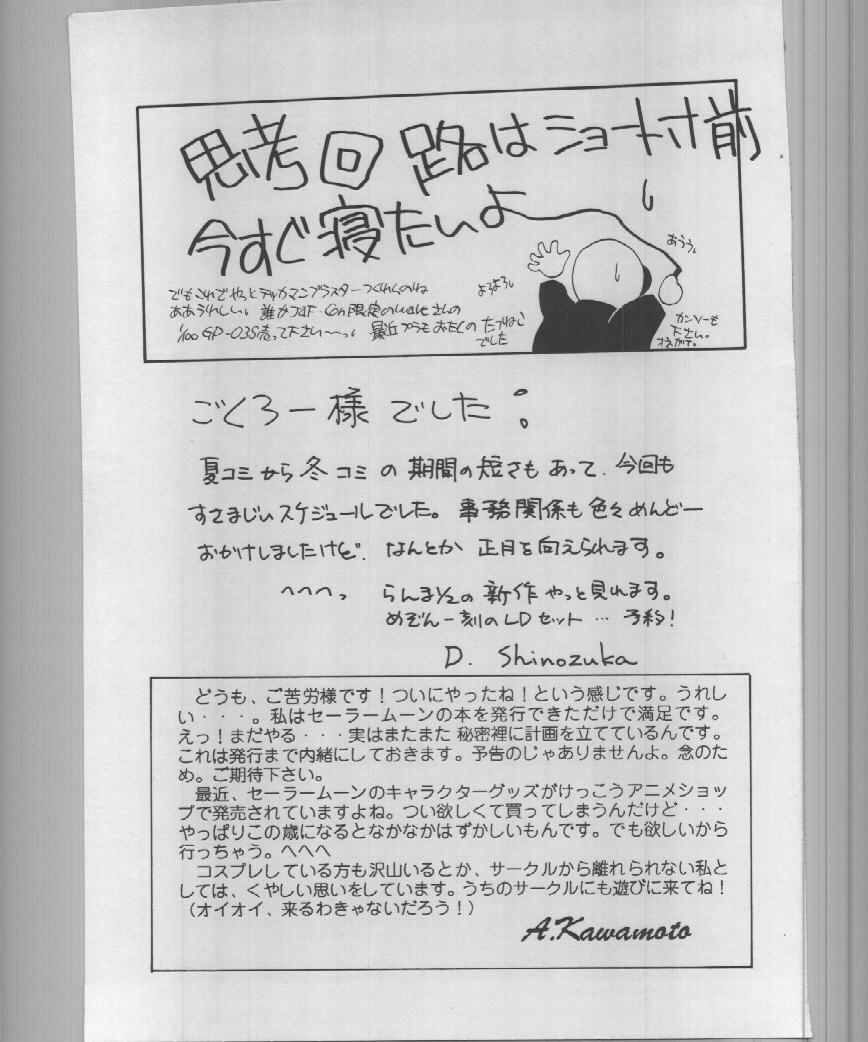 思考回路はショート寸前
今すぐ寝たいよ
あうう。
よろよろ。
でもこれでやっとテッカマンブラスターつくれるのね
ああうれしい。誰かJAF・CON限定のwaveさんの
1/100 GP-03S売って下さい〜っ。最近プラモおたくの
でした
カンソーも
下さい。
ごくろー様でした。
夏コミから冬コミの期間の短さもあって、今回も
すさまじいスケジュールでした。事務関係も色々めんどー
おかけしましたけど、なんとか正月を向えられます。
へへへっ らんま1/2の新作やっと見れます。
めぞん一刻のLDセット… 予約!
D. Shinozuka
どうも、ご苦労様です！ついにやったね！という感じです。うれし
い・・・。私はセーラームーンの本を発行できただけで満足です。
えっ！まだやる・・・実はまたまた 秘密裡に計画を立てているんです。
これは発行まで内緒にしておきます。予告のじゃありませんよ。念のた
め。ご期待下さい。
最近、セーラームーンのキャラクターグッズがけっこうアニメショッ
プで発売されていますよね。つい欲しくて買ってしまうんだけど・・・
やっぱりこの歳になるとなかなかはずかしいもんです。でも欲しいから
行っちゃう。へへへ
コスプレしている方も沢山いるとか、サークルから離れられない私と
しては、くやしい思いをしています。うちのサークルにも遊びに来てね！
（オイオイ、来るわきゃないだろう！）
A.Kawamoto